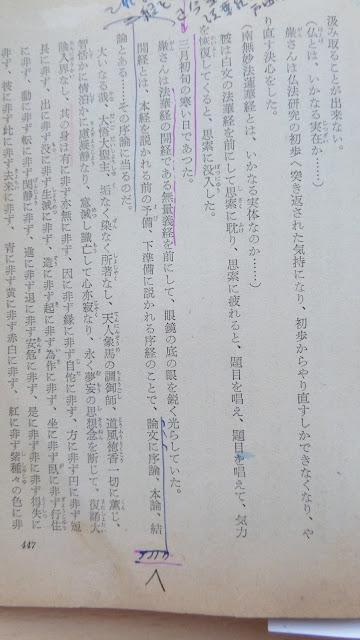 汲み取ることが出来ない。
（仏とは、いかなる実在か……）
巌さんは仏法研究の初歩へ突き返された気持になり、初歩からやり直すしかできなくなり、や
り直す決心をした。
（南無妙法蓮華経とは、いかなる実体なのか……）
彼は白文の法華経を前にして思索に耽り、思索に疲れると、題目を唱え、題目を唱えて、気力
を恢復してくると、思索に没入した。
三月初旬の寒い日であつた。
巌さんは法華経の開経である無量義経を前にして、眼鏡の底の眼を鋭く光らしていた。
開経とは、本経を説かれる前の予備、下準備に説かれる序経のことで、論文に序論、本論、結
論とある……その序論に当るのだ。
大いなる哉、大悟大聖主、垢なく染なく所著なし、天人象馬の調御師、道風徳香一切に薫じ、
智恬かに情泊かに慮凝静なり、意滅し識亡じて心亦寂なり、永く夢妄の思想念を断じて、復諸大
陰入界なし、其の身は有に非ず亦無に非ず、因に非ず縁に非ず自他に非ず、方に非ず円に非ず短
長に非ず、出に非ず没に非ず生滅に非ず、造に非ず起に非ず為作に非ず、坐に非ず臥に非ず行住
に非ず、動に非ず転に非ず閑静に非ず、進に非ず退に非ず安危に非ず、是に非ず非に非ず得失に
非ず、彼に非ず此に非ず去来に非ず、青に非ず黄に非ず赤白に非ず、紅に非ず紫種々の色に非
447